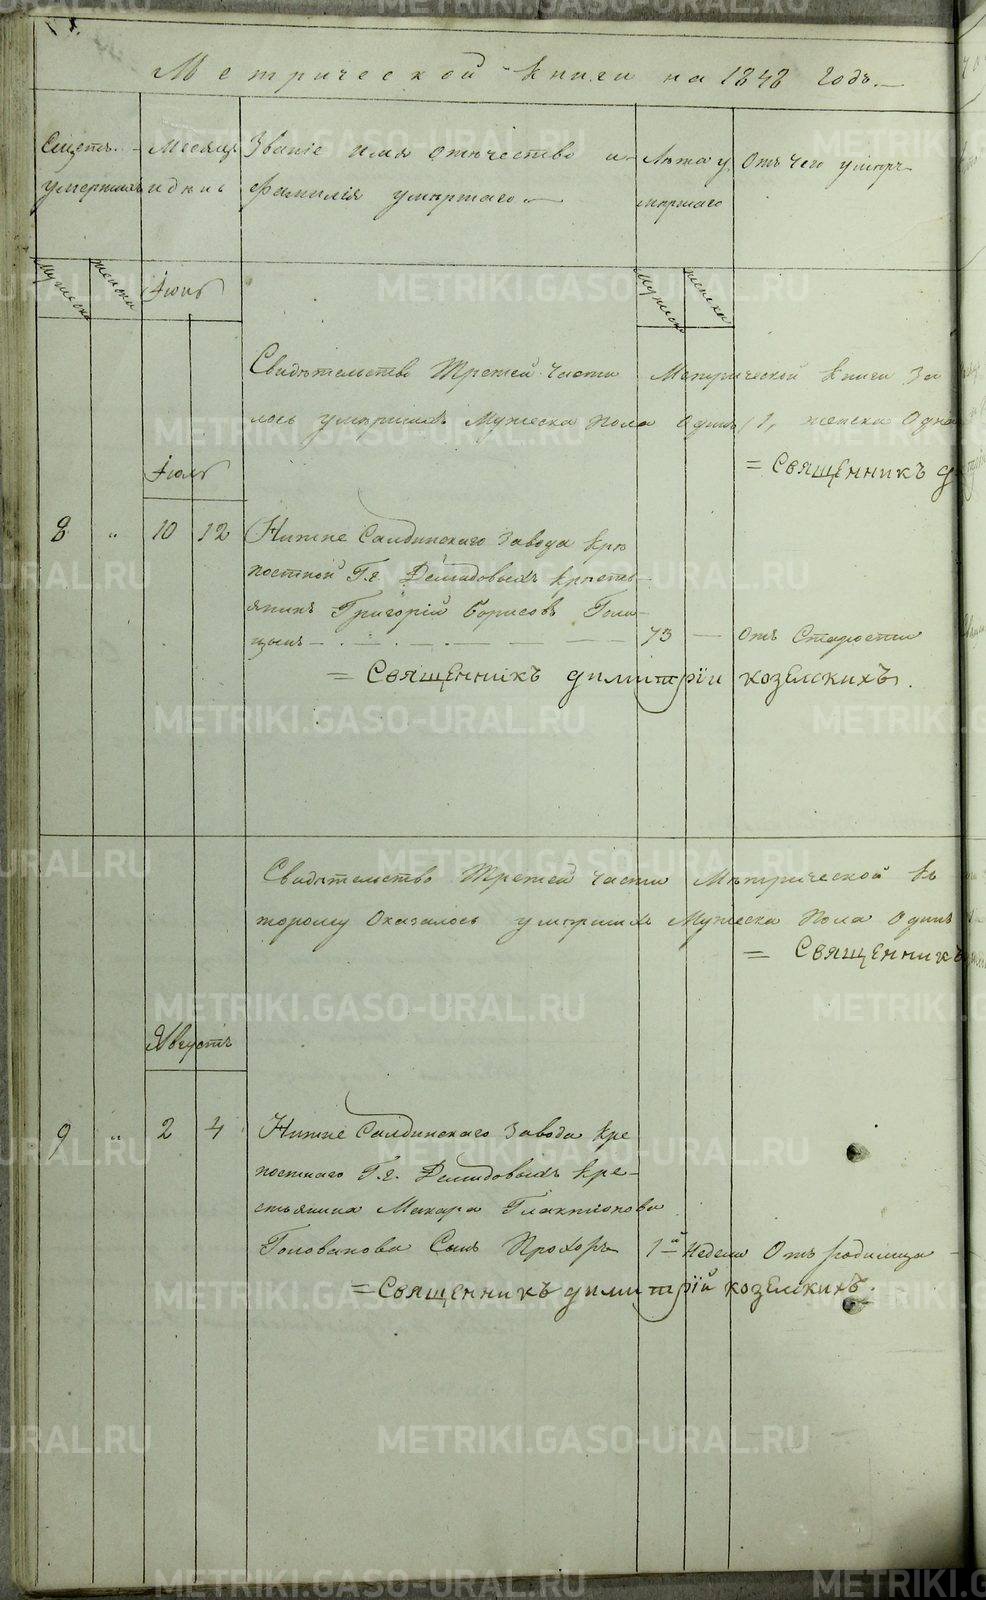 Метрической книги на 1848 годъ.
Счетъ умершихъ
Месяцъ и день
Званіе имя отечество и
фамилія умершаго
Лета умершаго
Отъ чего умеръ
Мужеска
Женска
Іюнь
Мужеска
Женска
Свидетельство Третей части Метрической книги за
лось умершихъ Мужеска пола Одинъ / 1, женска Одна
= Священникъ
Іюль
8 " 10 12 Нижне Салдинскаго завода кре
постной Г.г. Демидовыхъ кресть
янинъ Григорій Борисовъ Голи
цынъ 73 — Отъ Старости
= Священникъ Димитрій Козельскихъ.
Свидетельство Третей части Метрической к
торому Оказалось умершихъ Мужеска Пола Одинъ
= Священникъ
Августъ
9 " 2 4 Нижне Салдинскаго завода кре
постнаго Г.г. Демидовыхъ кре-
стьянина Макара Галактіонова
Голованова Сынъ Прохоръ 1й Недели Отъ родимца
= Священникъ Димитрій Козельскихъ.
METRIKI.GASO-URAL.RU